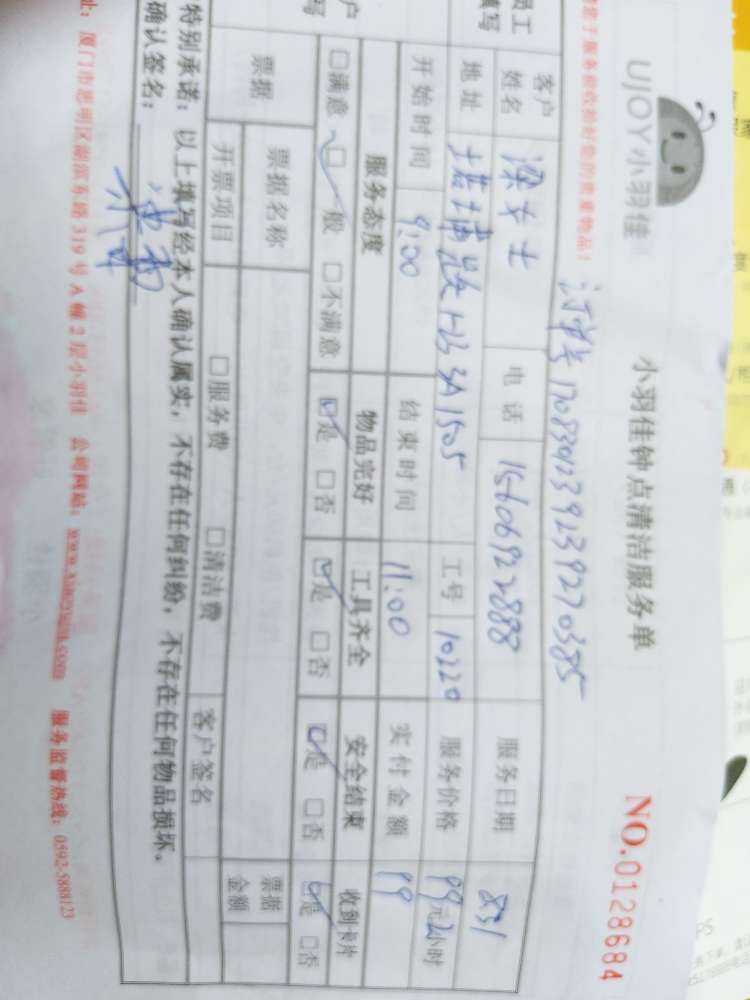 UJOY小羽佳
小羽佳钟点清洁服务单
NO.0128684
订单号
客户姓名 梁女士 电话 15606922888 服务日期 831
地址 3A1505 工号 10220 服务价格 99元2小时
开始时间 9:00 结束时间 11:00 实付金额 99
服务态度 物品完好 工具齐全 安全结束 收到卡片
□满意 □一般 □不满意 □是 □否 □是 □否 □是 □否 □是 □否
票据 票据名称 票据金额
开票项目 □服务费 □清洁费 客户签名
特别承诺：以上填写经本人确认属实，不存在任何纠纷，不存在任何物品损坏。
确认签名：
址：厦门市思明区湖滨东路319号A幢2层小羽佳 公司网站： 服务监督热线：0592-5888123